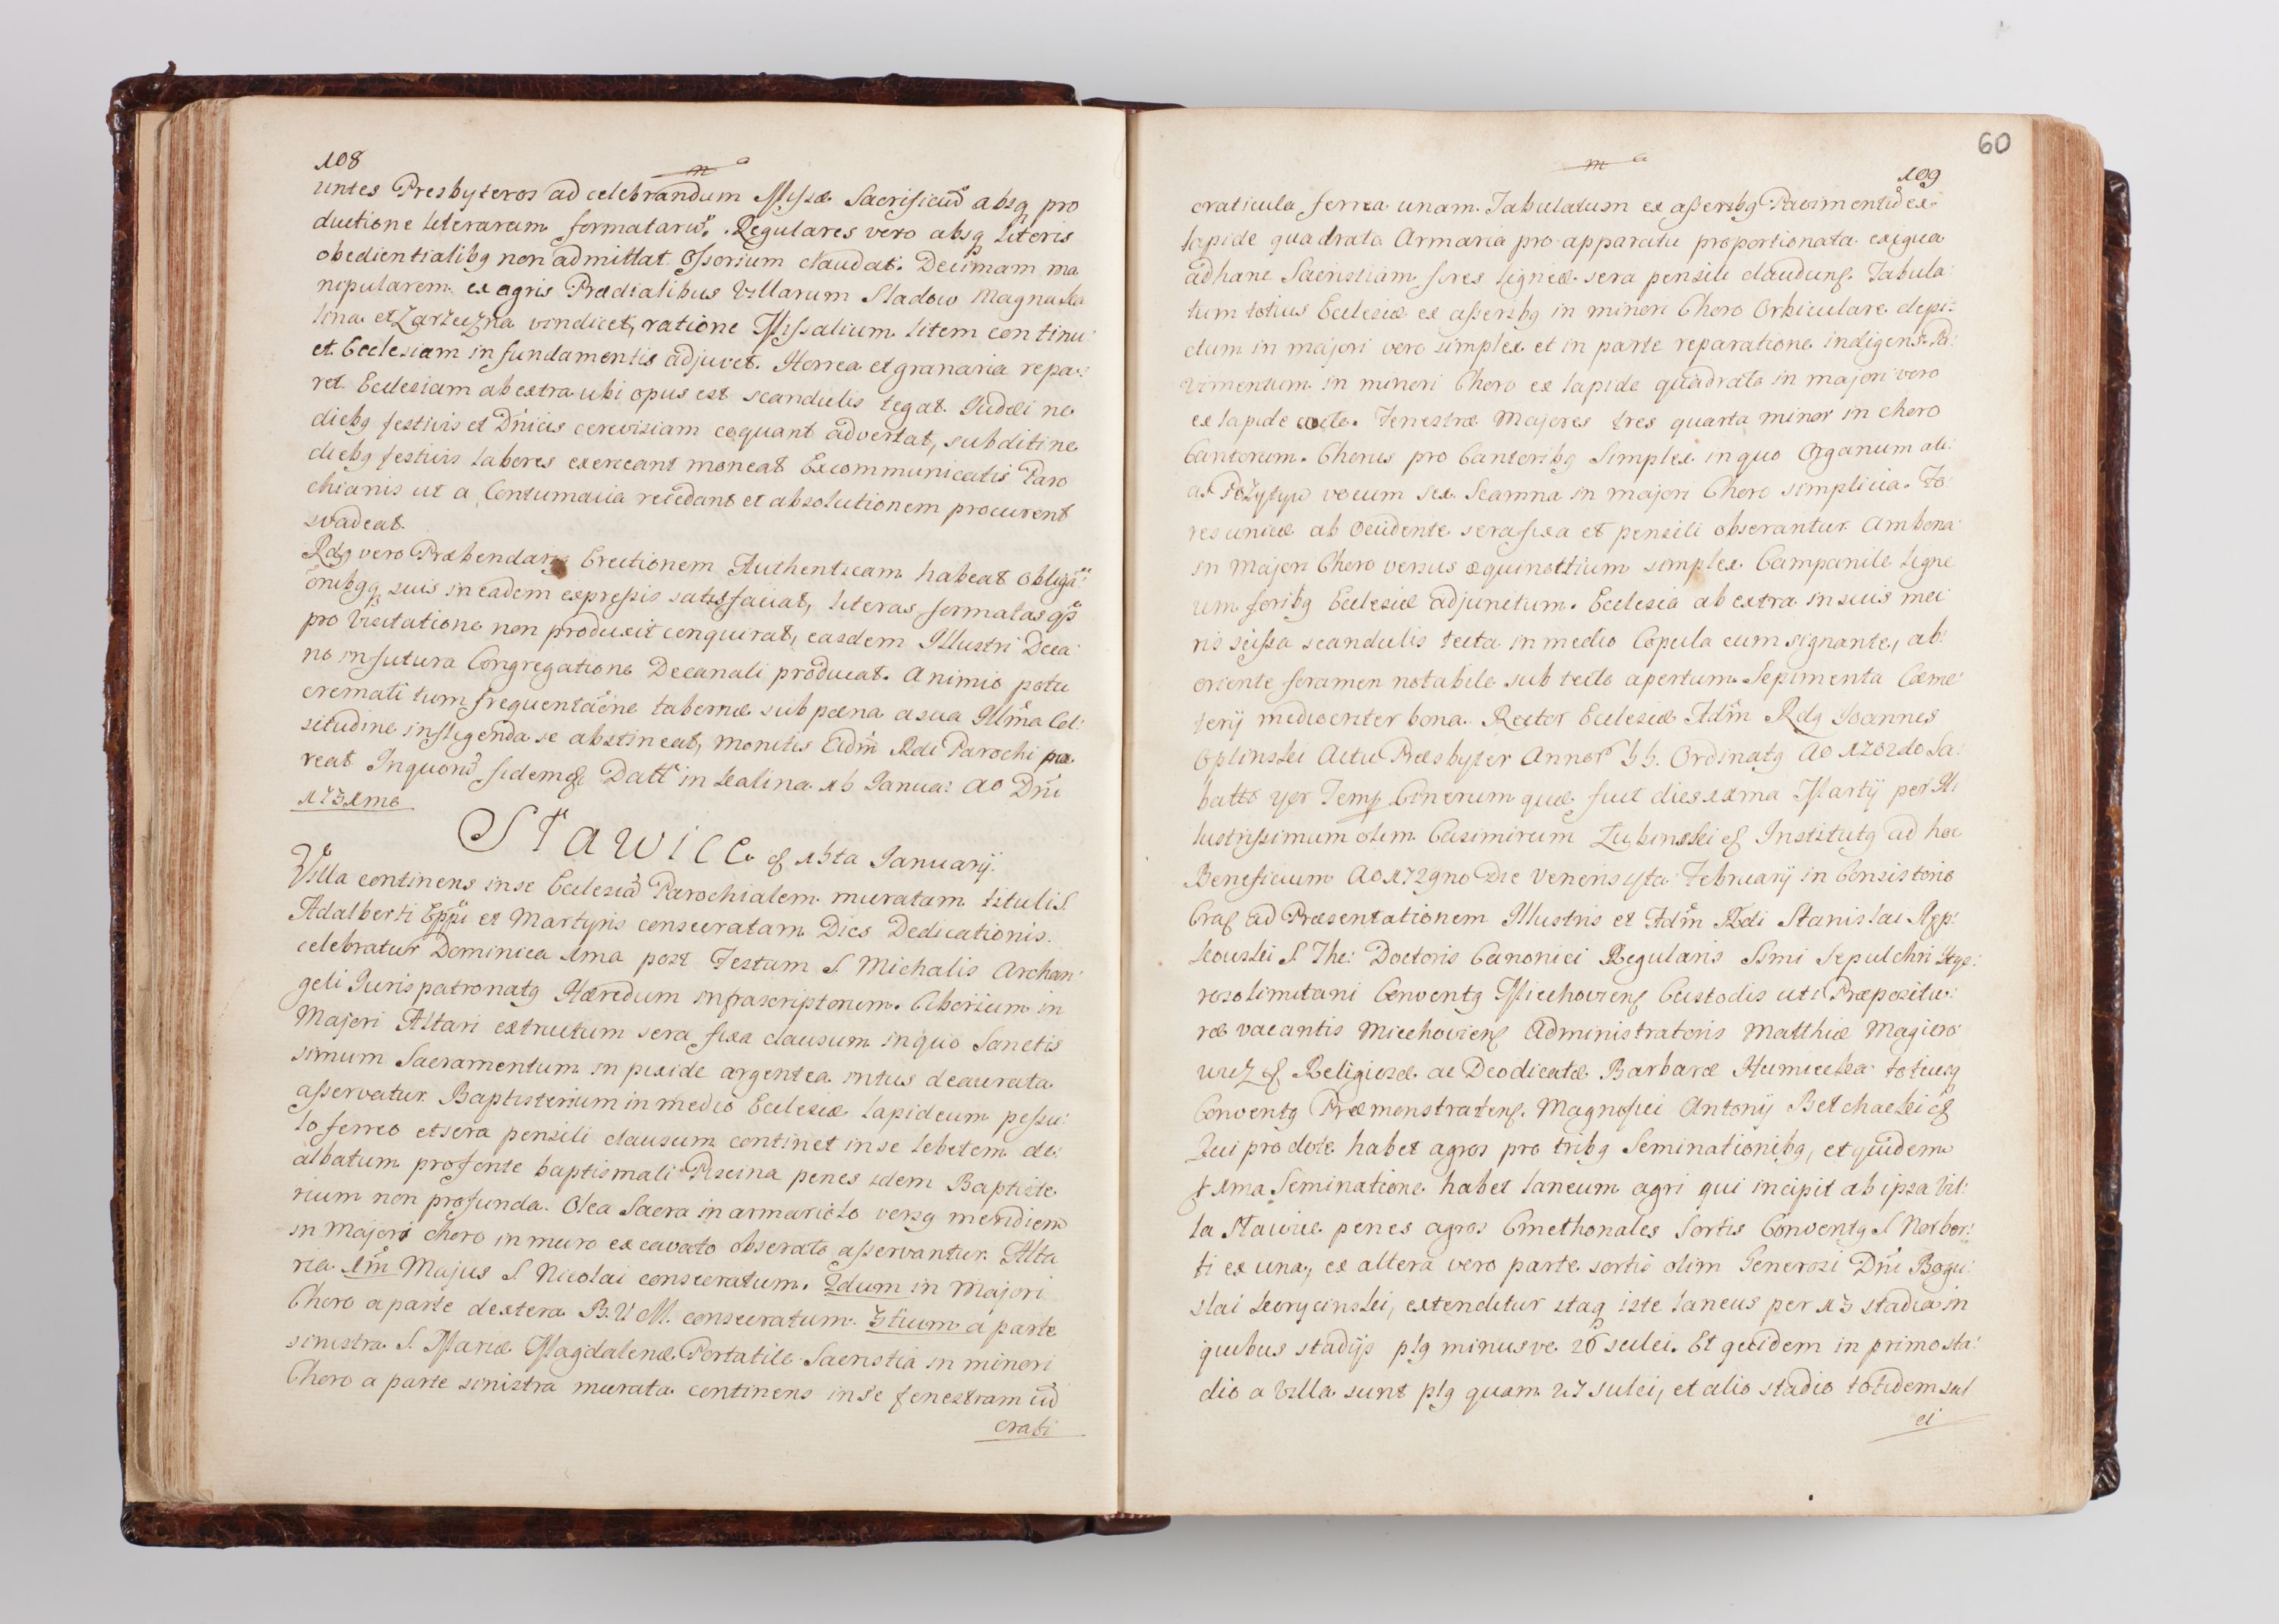 108
untes Presbyteros ad celebrandum Missæ Sacrificiũ absq pro
ductione literarum formatarũ. Regulares vero absq literis
obedientialibq non admittat. Ossorium claudat. Decimam ma
nipularem ex agris Prædialibus Villarum Sladow Magna Ka
lina et Zarzeczna vindicet, ratione Missalium litem continu:
et Ecclesiam in fundamentis adjuvet. Horrea et granaria repa:
ret. Ecclesiam ab extra ubi opus est scandulis tegat. Judæi ne
diebq festivis et Dñicis cerevisiam coquant advertat, subditi ne
diebq festivis labores exerceant moneat Excommunicatis Paro
chianis ut a Contumacia recedant et absolutionem procurent
svadeat.
Rdq vero Præbendariq Erectionem Authenticam habeat obliga:
õnibqq suis in eadem expressis satisfaciat, literas formatas qs
pro Visitatione non produxit conquirat, easdem Illustri Deca:
no in futura Congregatione Decanali producat. A nimio potu
cremati tum frequentãõne tabernæ sub pæna a sua Illma Cel:
situdine infligenda se abstineat, monitis Adm Rdi Parochi pa
reat. In quorũ fidem Datt in Kalina 15 Janua: Ao Dñi
1731mo
STAWICE 15ta Januarij.
Villa continens in se Ecclesiã Parochialem muratam tituli S.
Adalberti Eppi et Martyris consecratam Dies Dedicationis.
celebratur Dominica 1ma post Festum S. Michalis Archan:
geli Juris patronatq Hæredum infrascriptorum. Ciborium in
Majori Altari extructum sera fixa clausum in quo Sanctis
simum Sacramentum in pixide argentea intus deaurata
asservatur. Baptisterium in medio Ecclesiæ lapideum pessu:
lo ferreo et sera pensili clausum continet in se lebetem de:
albatum pro fonte baptismali Piscina penes idem Baptiste
rium non profunda. Olea Sacra in armariolo versq meridiem
in Majori choro in muro excavato obserato asservantur. Alta
ria 1m Majus S. Nicolai consecratum. 2dum in Majori
Choro a parte dextera B.V.M. consecratum. 3tium a parte
sinistra S. Mariæ Magdalenæ Portatile. Sacristia in minori
Choro a parte sinistra murata continens in se fenestram cũ
crati
60
109
craticula ferrea unam. Tabulatum ex asseribq Pavimentũ ex:
lapide quadrato Armaria pro apparatu proportionata exigua
ad hanc Sacristiam fores ligneæ sera pensili claudunt. Tabula:
tum totius Ecclesiæ ex asseribq in minori Choro Orbiculare depi:
ctum in majori vero simplex et in parte reparatione indigens. Pa:
vimentum in minori Choro ex lapide quadrato in majori vero
ex lapide cocto. Fenestræ Majores tres quarta minor in choro
Cantorum. Chorus pro Cantoribq Simplex in quo Organum ali:
as Pozytyw vocum sex. Scamna in majori Choro simplicia. Fo:
res unicæ ab Occidente sera fixa et pensili obserantur. Ambona
in Majori Choro versus æquinoctium simplex Campanile ligne
um foribq Ecclesiæ adjunctum. Ecclesia ab extra in suis mu
ris scissa scandulis tecta in medio Copula cum signante, ab:
oriente foramen notabile sub tecto apertum. Sepimenta Cæme:
terij mediocriter bona. Rector Ecclesiæ Adm Rdq Joannes
Oplinski Actu Præsbyter Annor 55. Ordinatq Ao 1702do Sa:
batto Temp Cinerum quæ fuit dies Martij per Il
lustrissimum olim Casimirum Łubinski Institutq ad hoc
Beneficium Ao 1729no Die Veneris 4ta Februarij in Consistorio
Crac ad Præsentationem Illustris et Adm Rdi Stanislai
S. The: Doctoris Canonici Regularis Ssmi Sepulchri Hye:
rosolimitani Conventq Miechoviens Custodis uti Præpositu:
ræ vacantis Miechoviens Administratoris Matthiæ Magiero
wicz Religiosæ ac Deodicatæ Barbaræ Humiecka totiusq
Conventq Præmonstratens. Magnifici Antonij Betchacki
Qui pro dote habet agros pro tribq Seminationibq, et quidem
1ma Seminatione habet laneum agri qui incipit ab ipsa Vil:
la Stawice penes agros Cmethonales Sortis Conventq S. Norber:
ti ex una, ex altera vero parte sortis olim Generosi Dñi Bogu:
slai Korycinski, extenditur itaq iste laneus per 13 stadia in
quibus stadijs plq minusve 26 sulci. Et quidem in primo sta:
dio a Villa sunt plq quam 27 sulci, et alio stadio totidem sul
ci